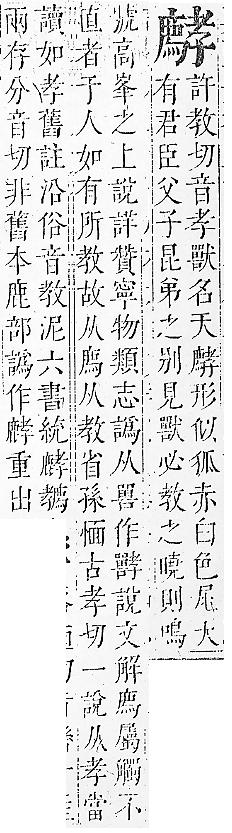 許教切音孝獸名天形似狐赤白色尾大
有君臣父子昆弟之别見獸必教之曉則鳴
號高峯之上說詳贊寧物類志譌从嘼作說文解廌屬觸不
直者于人如有所教故从廌从教省孫愐古孝切一說从孝當
讀如孝舊註沿俗音教泥六書統
兩存分音切非舊本鹿部譌作重出